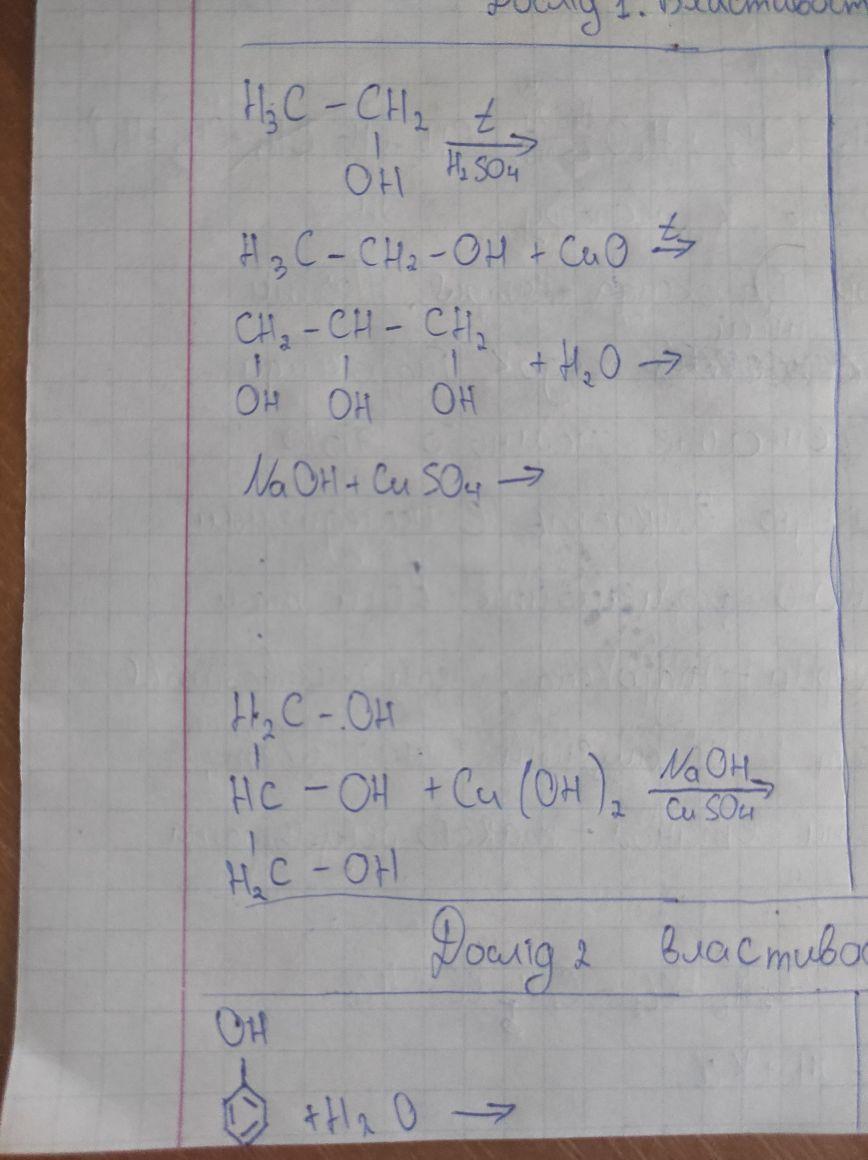 Дослід 1. Властивост
H₃C – CH₂
|
OH
t
H₂SO₄
→
H₃C – CH₂ – OH + CuO t →
CH₂ – CH – CH₂
| | |
OH OH OH
+ H₂O →
NaOH + CuSO₄ →
H₂C – OH
|
HC – OH + Cu(OH)₂ NaOH → CuSO₄
|
H₂C – OH
Дослід 2 властиво
OH
+ H₂O →